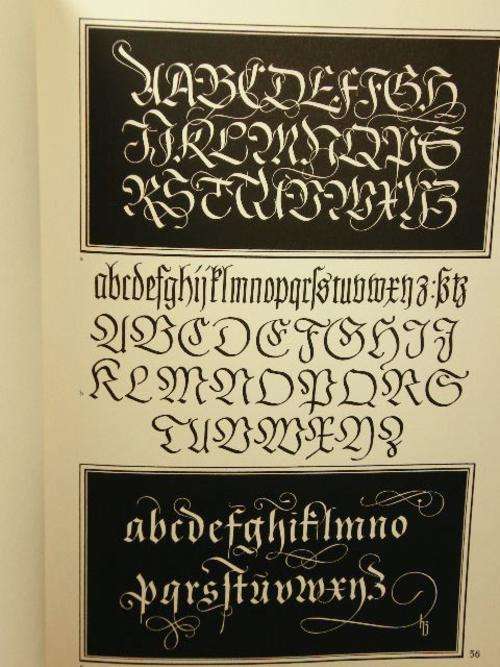 AABCDEFFGH
IJKLMNOPS
RSTTUVWXYZ
abcdefghijklmnopqrſstuvwxyz.ßtz
ABCDEFGHIJ
KLMNOPQRS
TUVWXYZ
abcdefghiklmno
pqrsſtüvwxyz
hz
36